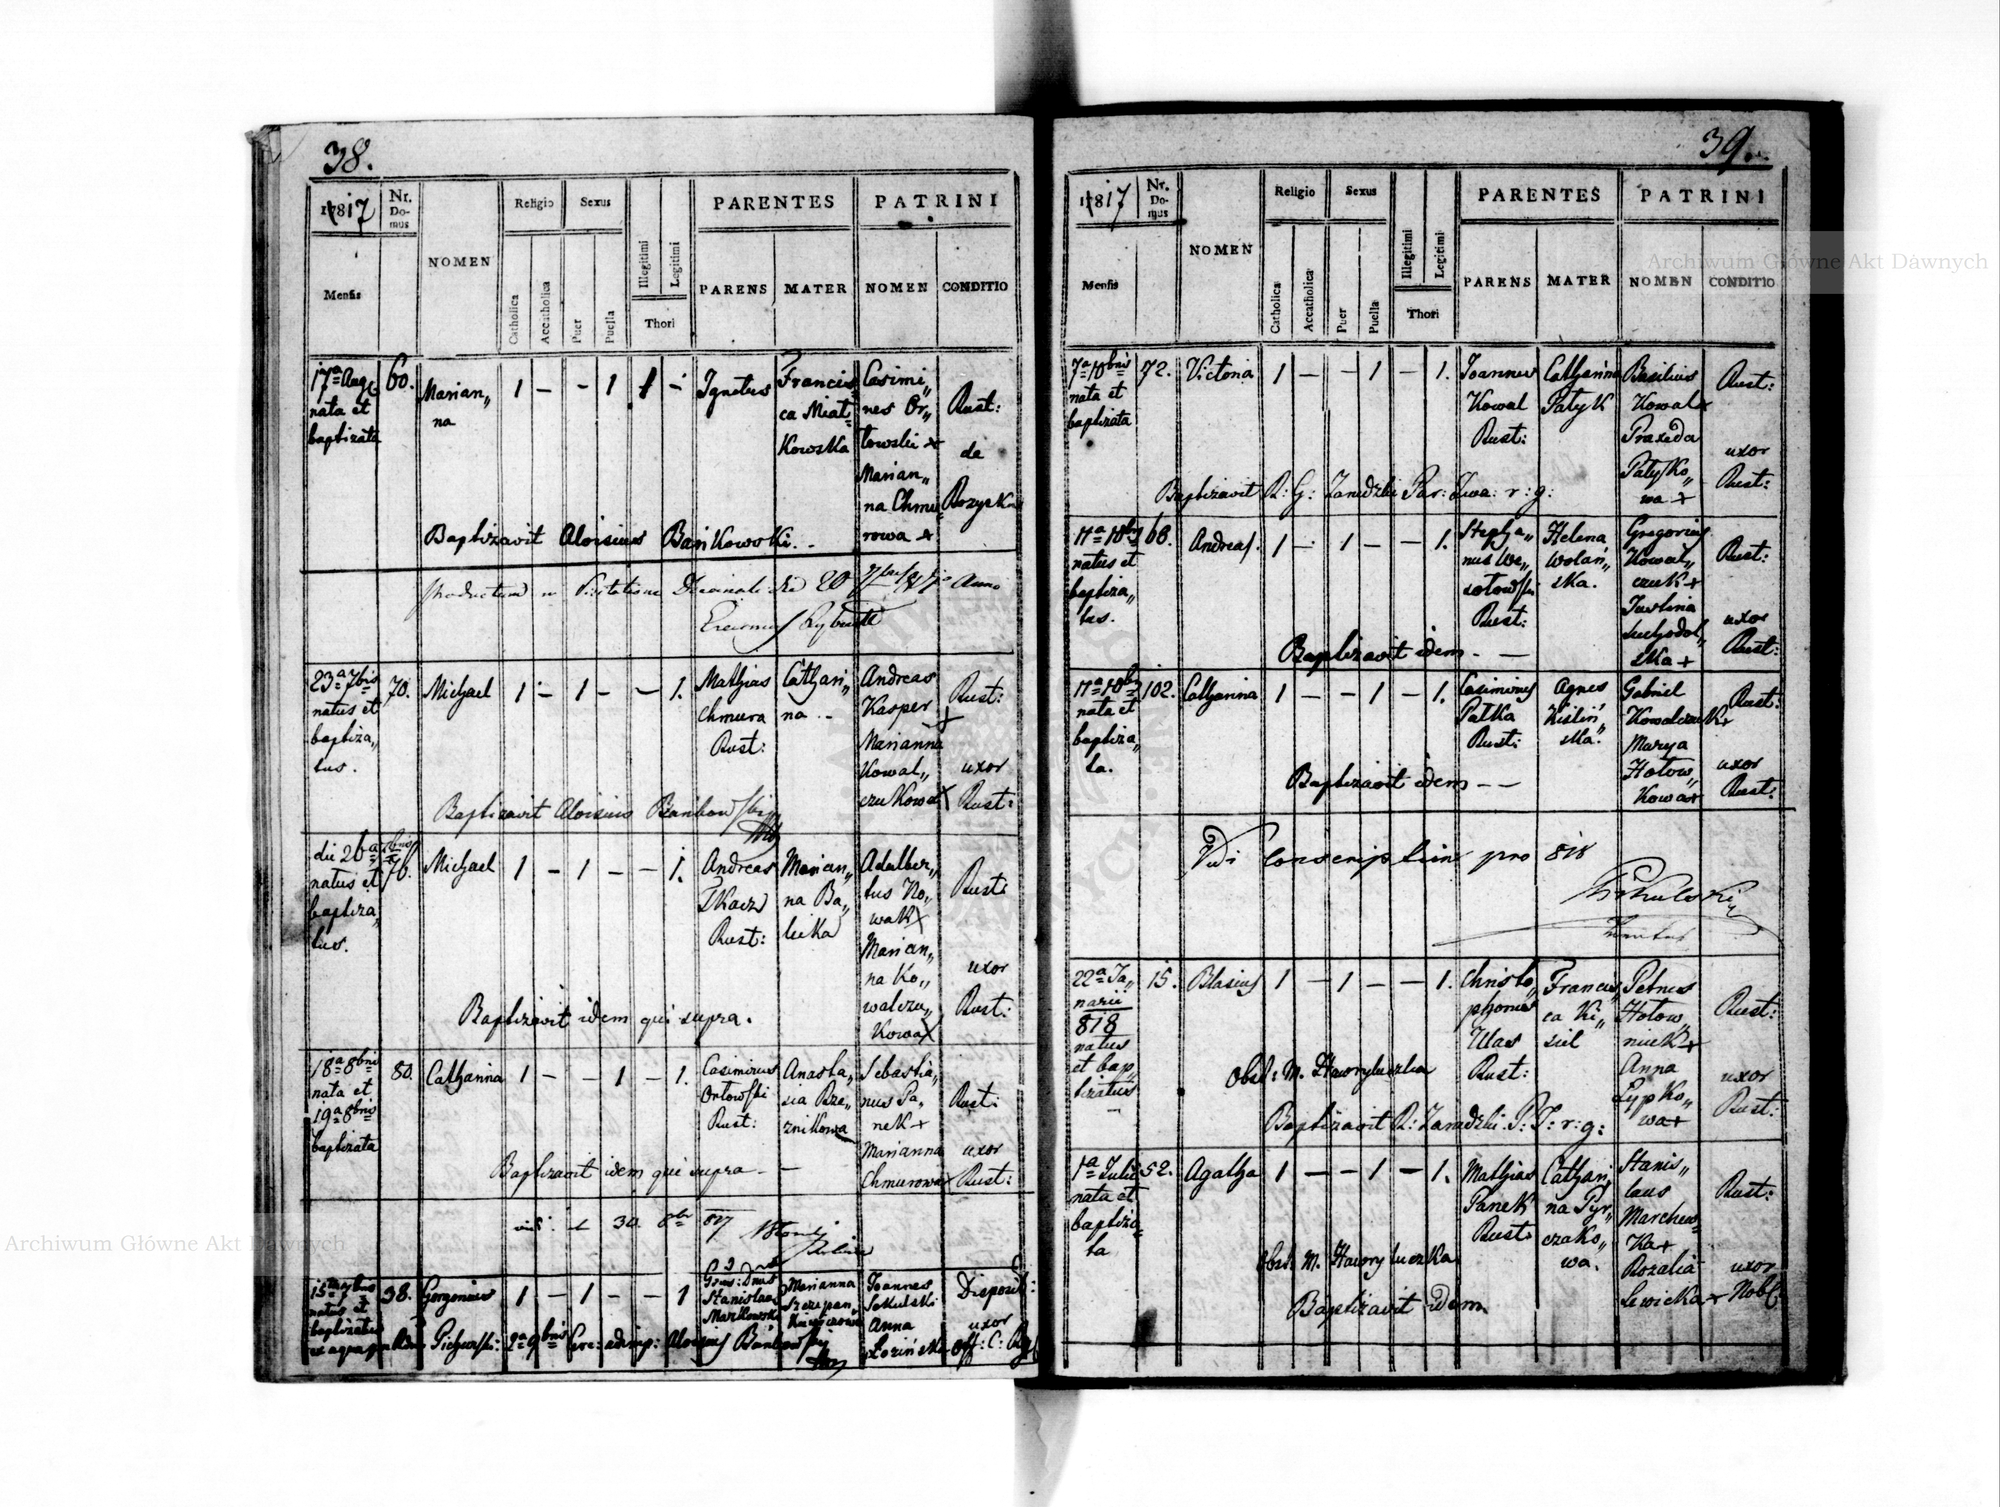 38.
1817
Nr. Domus
NOMEN
Religio
Sexus
PARENTES
PATRINI
Mensis
Catholica
Accatholica
Puer
Puella
Illegitimi
Legitimi
Thori
PARENS
MATER
NOMEN
CONDITIO
17a Aug
nata et
baptizata
60.
Marian„
na
1 – – 1 1 –
Ignotus
Francis
ca Miat
kowska
Casimi„
rus Or„
lowski +
Marian„
na Chmu
rowa +
Rust:
de
Baptizavit Aloisius Bańkowski. –
Productum in Visitatione Decanali die 20 7bris 817 Anno
23a 7bris
natus et
baptiza„
tus.
70.
Michael
1 – 1 – – 1.
Mathias
Chmura
Rust:
Cathari„
na. –
Andreas
Kasper
+
Marianna
Kowal„
czukowa +
Rust:
uxor
Rust:
Baptizavit Aloisius Bańkowski
die 26a 7bris
natus et
baptiza„
tus.
76.
Michael
1 – 1 – – 1.
Andreas
Tkacz
Rust:
Marian„
na Ba„
licka
Adalber„
tus No„
wak +
Marian„
na Ko„
walczu„
kowa +
Rust:
uxor
Rust:
Baptizavit idem qui supra.
18a 8bris
nata et
19a 8bris
baptizata
80.
Catharina
1 – – 1 – 1.
Casimirus
Orłowski
Rust:
Anasta„
sia Brze„
znikowa
Sebastia„
nus Pa„
nek +
Marianna
Chmurowa +
Rust:
uxor
Rust:
Baptizavit idem qui supra – –
30. 8br 817
natus et
baptizatus
ex aqua
38.
Gorgonius
1 – 1 – – 1
Stanislaus
Markowski
Marianna
Szczepan„
Joannes
Sokulski
Anna
Disposit:
uxor
2a 9bris Cere: adimp: Aloisius Bańkowski
39.
1817
Nr. Domus
NOMEN
Religio
Sexus
PARENTES
PATRINI
Mensis
Catholica
Accatholica
Puer
Puella
Illegitimi
Legitimi
Thori
PARENS
MATER
NOMEN
CONDITIO
7a 10bris
nata et
baptizata
72.
Victoria
1 – – 1 – 1.
Joannes
Kowal
Rust:
Catharina
Patyk
Basilius
Kowal +
Praxeda
Patyko„
wa +
Rust:
uxor
Rust:
Baptizavit R: G: Zawadzki Par: r: g:
17a 10bris
natus et
baptiza„
tus.
68.
Andreas.
1 – 1 – – 1.
Stepha„
nus We„
sołowski
Rust:
Helena
Wolań„
ska.
Gregorius
Kowal„
czuk +
Pawlina
Suchodol„
ska +
Rust:
uxor
Rust:
Baptizavit idem – –
17a 10bris
nata et
baptiza„
ta.
102.
Catharina
1 – – 1 – 1.
Casimirus
Pałka
Rust:
Agnes
Ziśliń„
ska.
Gabriel
Kowalczuk +
Marya
Hołow„
kowa +
Rust:
uxor
Rust:
Baptizavit idem – –
Vidi Conscriptione pro 818
22a Ja„
nuarii
818
natus
et bap„
tizatus
15.
Blasius
1 – 1 – – 1.
Christo„
phorus
Ulas
Rust:
Francis„
ca Ki„
siel
Petrus
Hołow„
niuk +
Anna
Łypko„
wa +
Rust:
uxor
Rust:
Obst: M. Hawryluczka
Baptizavit R: Zawadzki P: T: r: g:
1a Julii
nata et
baptiza„
ta
52.
Agatha
1 – – 1 – 1.
Mathias
Panek
Rust:
Cathari„
na Pyr„
czako„
wa.
Stanis„
laus
Marchew„
ka +
Rozalia
Lewicka +
Rust:
uxor
Nobl:
Obst: M. Hawryluczka
Baptizavit idem
Archiwum Główne Akt Dawnych
Archiwum Główne Akt Dawnych